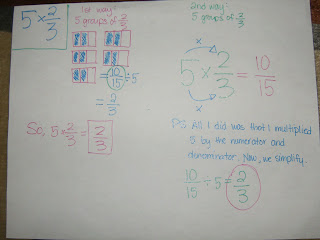 5 × 2/3
1st way
5 groups of 2/3
= 10/15 ÷ 5
= 2/3
So, 5 × 2/3 = 2/3
2nd way
5 groups of 2/3
x
5 × 2/3 = 10/15
x
P.S. All I did was that I multiplied
5 by the numerator and
denominator. Now, we simplify.
10/15 ÷ 5 = 2/3